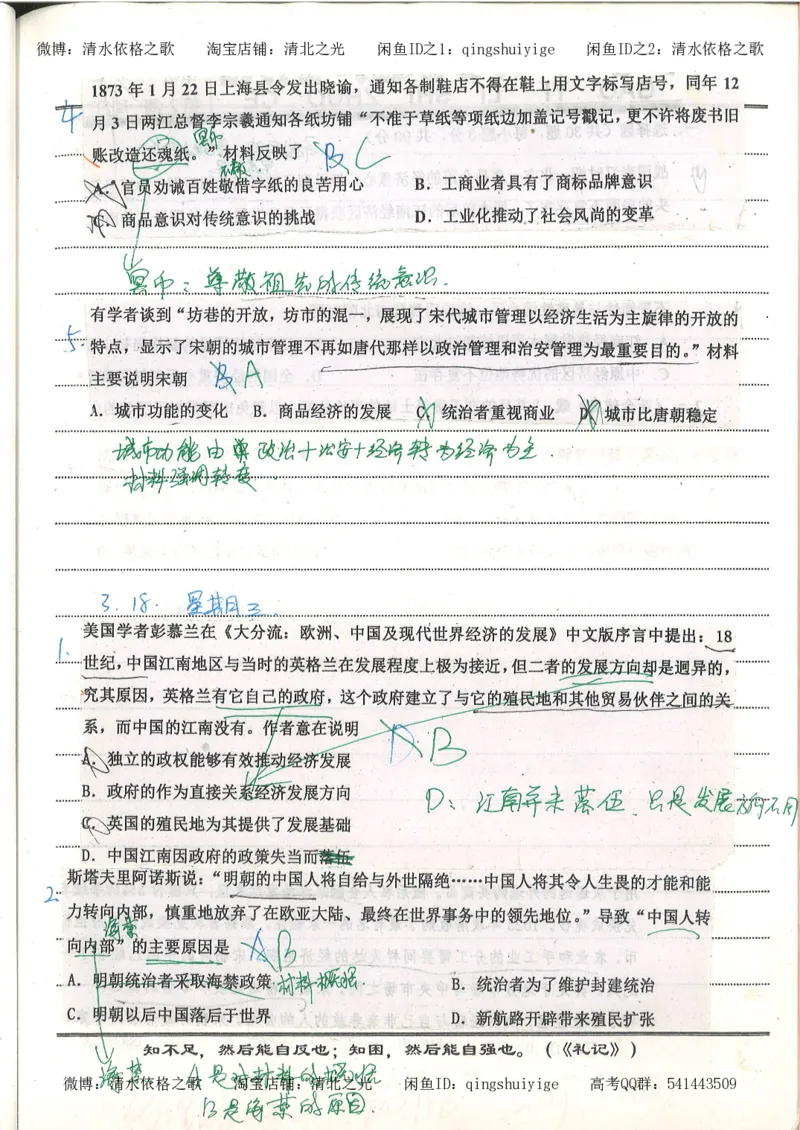 微博：清水依格之歌 淘宝店铺：清北之光 闲鱼ID之1：qingshuiyige 闲鱼ID之2：清水依格之歌
4
1873年1月22日上海县令发出晓谕，通知各制鞋店不得在鞋上用文字标写店号，同年12
月3日两江总督李宗羲通知各纸坊铺“不准于草纸等项纸边加盖记号戳记，更不许将废书旧
账改造还魂纸。”材料反映了 B C
A. 官员劝诫百姓敬惜字纸的良苦用心 B. 工商业者具有了商标品牌意识
C. 商品意识对传统意识的挑战 D. 工业化推动了社会风尚的变革
冥币：尊敬祖先的传统意识.
5.
有学者谈到“坊巷的开放，坊市的混一，展现了宋代城市管理以经济生活为主旋律的开放的
特点，显示了宋朝的城市管理不再如唐代那样以政治管理和治安管理为最重要目的。”材料
主要说明宋朝 B A
A. 城市功能的变化 B. 商品经济的发展 C. 统治者重视商业 D. 城市比唐朝稳定
城市功能由 政治+治安+经济转为经济为主.
材料强调转变
3.18. 星期三.
1.
美国学者彭慕兰在《大分流：欧洲、中国及现代世界经济的发展》中文版序言中提出：18
世纪，中国江南地区与当时的英格兰在发展程度上极为接近，但二者的发展方向却是迥异的，
究其原因，英格兰有它自己的政府，这个政府建立了与它的殖民地和其他贸易伙伴之间的关
系，而中国的江南没有。作者意在说明 D B
A. 独立的政权能够有效推动经济发展
B. 政府的作为直接关系经济发展方向
C. 英国的殖民地为其提供了发展基础
D. 中国江南因政府的政策失当而落伍
D：江南并未落伍，只是发展方向不同
2.
斯塔夫里阿诺斯说：“明朝的中国人将自给与外世隔绝……中国人将其令人生畏的才能和能
力转向内部，慎重地放弃了在欧亚大陆、最终在世界事务中的领先地位。”导致“中国人转
海禁
向内部”的主要原因是 A B
A. 明朝统治者采取海禁政策 材料概括. B. 统治者为了维护封建统治
C. 明朝以后中国落后于世界 D. 新航路开辟带来殖民扩张
知不足，然后能自反也；知困，然后能自强也。（《礼记》）
海禁 A是对材料的概括
微博：清水依格之歌 淘宝店铺：清北之光 闲鱼ID：qingshuiyige 高考QQ群：541443509
B是海禁的原因.